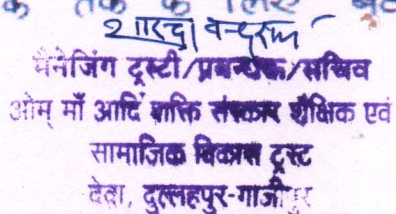 तक के लिए
शारदा
मैनेजिंग ट्रस्टी/प्रबन्धक/सचिव
ओम् माँ आदि शक्ति संस्कार शैक्षिक एवं
सामाजिक विकास ट्रस्ट
देवा, दुल्लहपुर-गाजीपुर